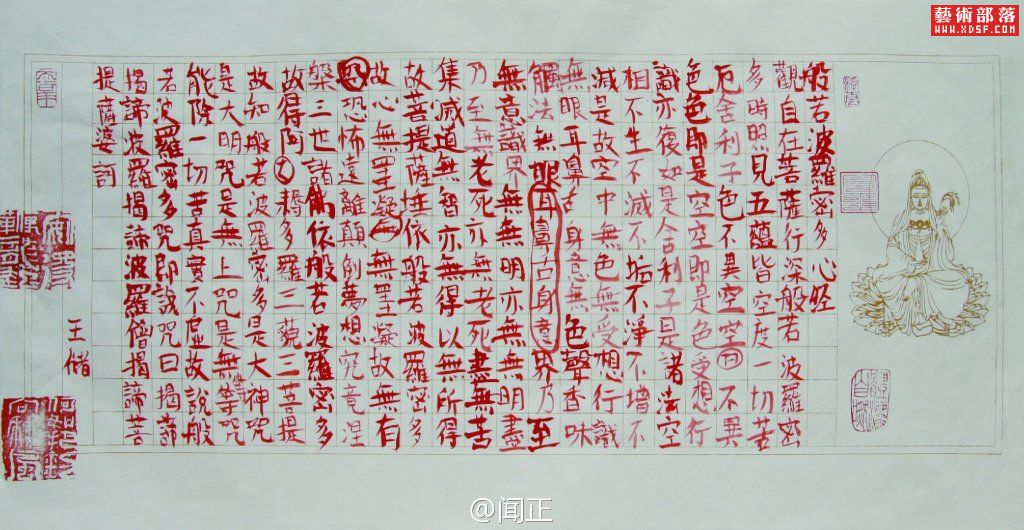 藝術部落
WWW.XDSF.COM
般若波羅密多心经
觀自在菩薩行深般若波羅密
多時照見五蘊皆空度一切苦
厄舍利子色不異空空不異
色色即是空空即是色受想行
識亦復如是舍利子是諸法空
相不生不滅不垢不淨不增不
減是故空中無色無受想行識
無眼耳鼻舌身意無色聲香味
觸法無眼耳鼻舌身意界乃至
無意識界無無明亦無無明盡
乃至無老死亦無老死盡無苦
集滅道無智亦無得以無所得
故菩提薩埵依般若波羅密多
故心無罣礙無罣礙故無有
恐怖遠離顛倒夢想究竟涅
槃三世諸佛依般若波羅密多
故得阿耨多羅三藐三菩提
故知般若波羅密多是大神咒
是大明咒是無上咒是無等等咒
能除一切苦真實不虛故說般
若波羅密多咒即說咒曰揭諦
揭諦波羅揭諦波羅僧揭諦菩
提薩婆訶
王儲
@闻正